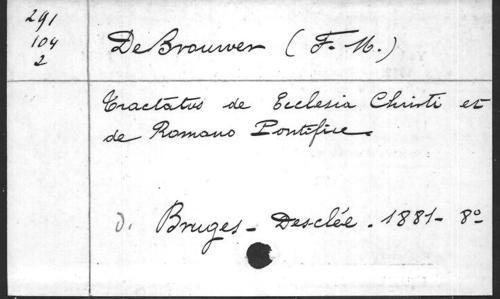 291
104
2
De Brouwer (F. M.)
Tractatus de Ecclesia Christi et
de Romano Pontifice.
d. Bruges - Desclée. 1881 - 8º